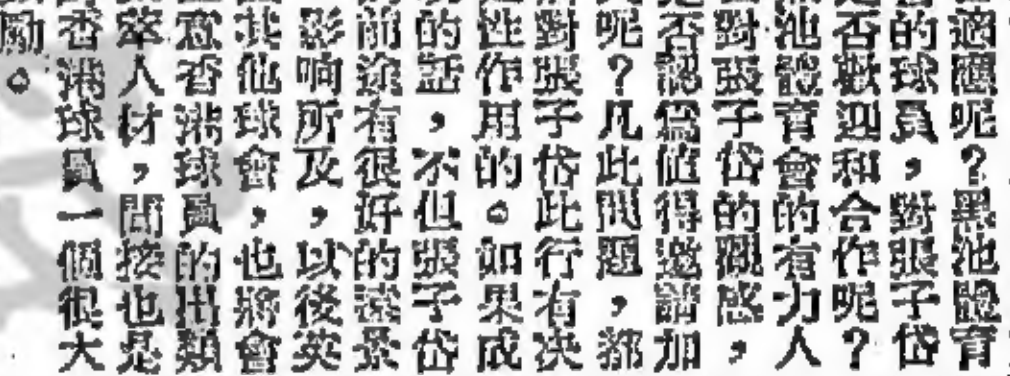 適應呢？黑池體育
的球員，對張子岱
否歡迎和合作呢？
池體育會的有力人
對張子岱的觀感，
否認爲值得邀請加
呢？凡此問題，都
對張子岱此行有決
性作用的。如果成
的話，不但張子岱
前途有很好的遠景
影响所及，以後英
其他球會，也將會
意香港球員的出類
萃人材，間接也是
香港球員一個很大
勵。